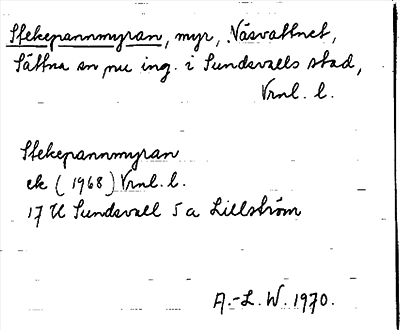 Stekepannmyran, myr, Näsvattnet,
Sättna sn nu ing. i Sundsvalls stad,
Vrnl. l.
Stekepannmyran
ek (1968) Vrnl. l.
17 H Sundsvall 5 a Lillström
A.-L. W. 1970.